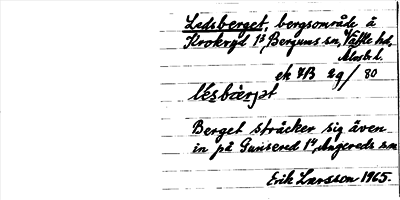 Ledsberget, bergsområde å
Krokryd 1³ Bergums sn, Vättle hd,
Älvsb. l.
ek 7B 2g / 80
lésbæ̀rjət
Berget sträcker sig även
in på Gunsered 1⁴, Angereds sn
Erik Larsson 1965.